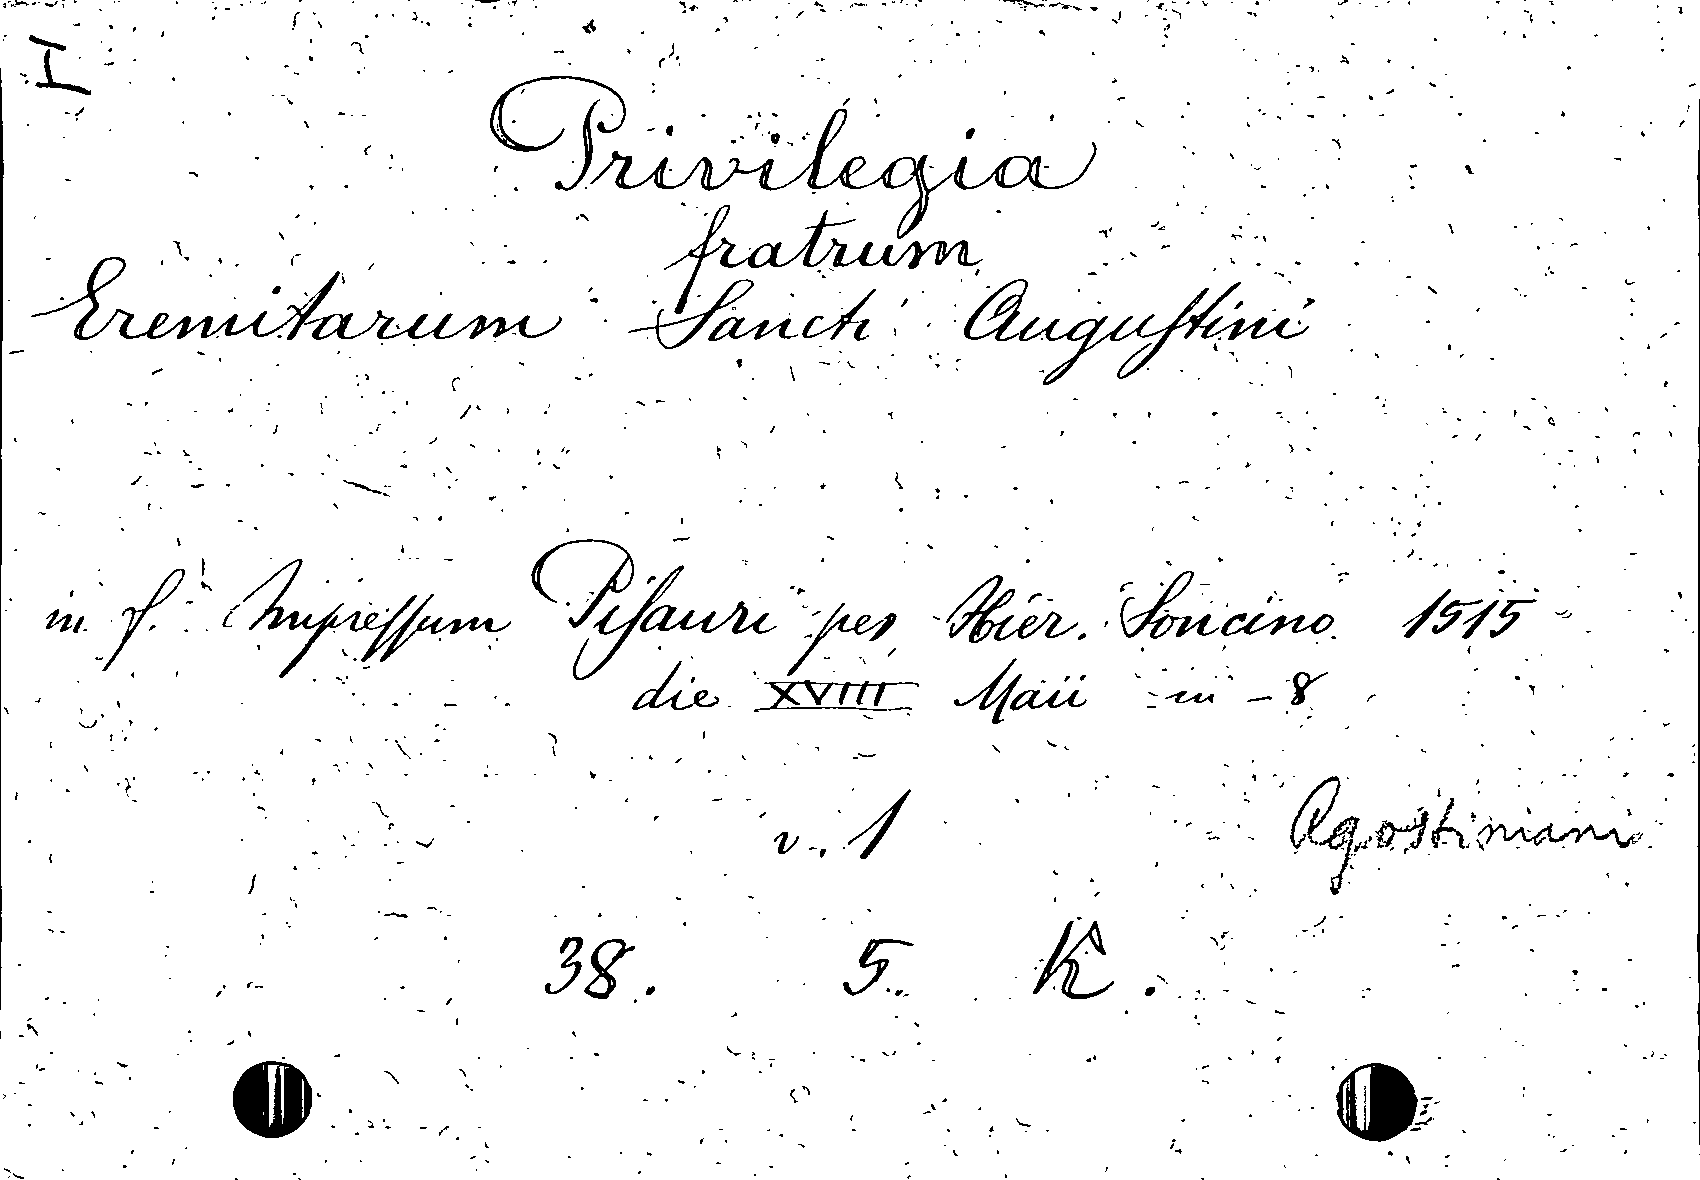 I
Privilegia
fratrum
Eremitarum Sancti Augustini
in f. Impressum Pisauri per Hier. Soncino 1515
die XVIIII Maii in - 8
v. 1
Agostiniani
38. 5. K.